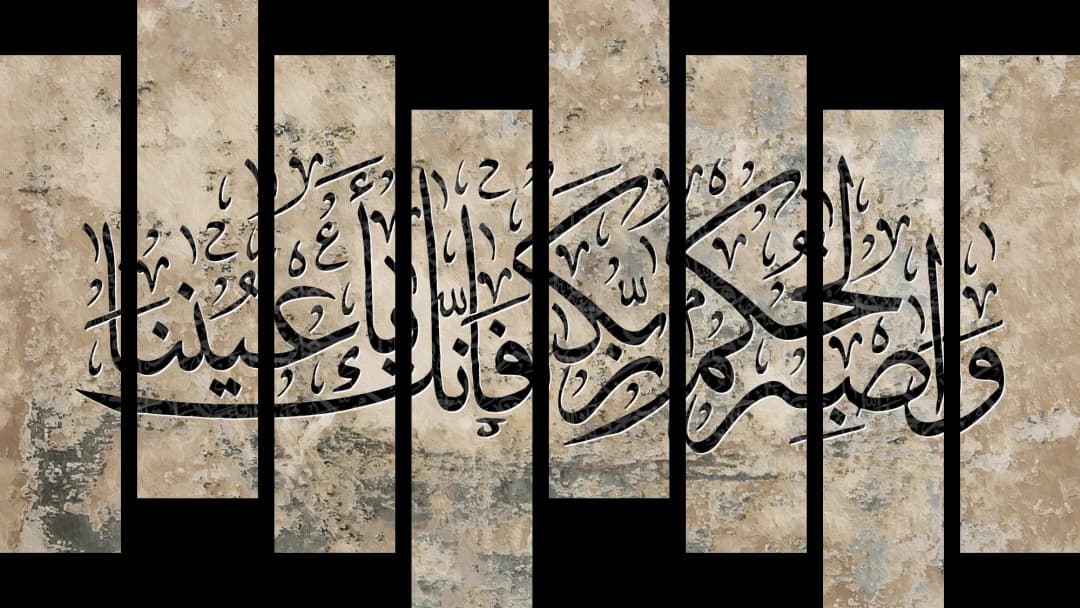 واصبر لحكم ربك فإنك بأعيننا